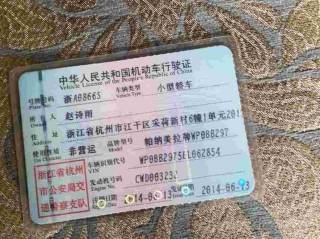 中华人民共和国机动车行驶证
Vehicle License of the People's Republic of China
号牌号码 浙A086S5 车辆类型 Vehicle Type 小型轿车
所有人 赵诗雨
住址 浙江省杭州市江干区采荷新村6幢1单元201
使用性质 非营运 品牌型号 帕纳美拉牌WP088297
车辆识别代号 VIN WP0882975EL662854
浙江省杭州
市公安局交
通警察支队
发动机号码 Engine No. CWD00323
注册日期 2014-06-13 发证日期 2014-06-